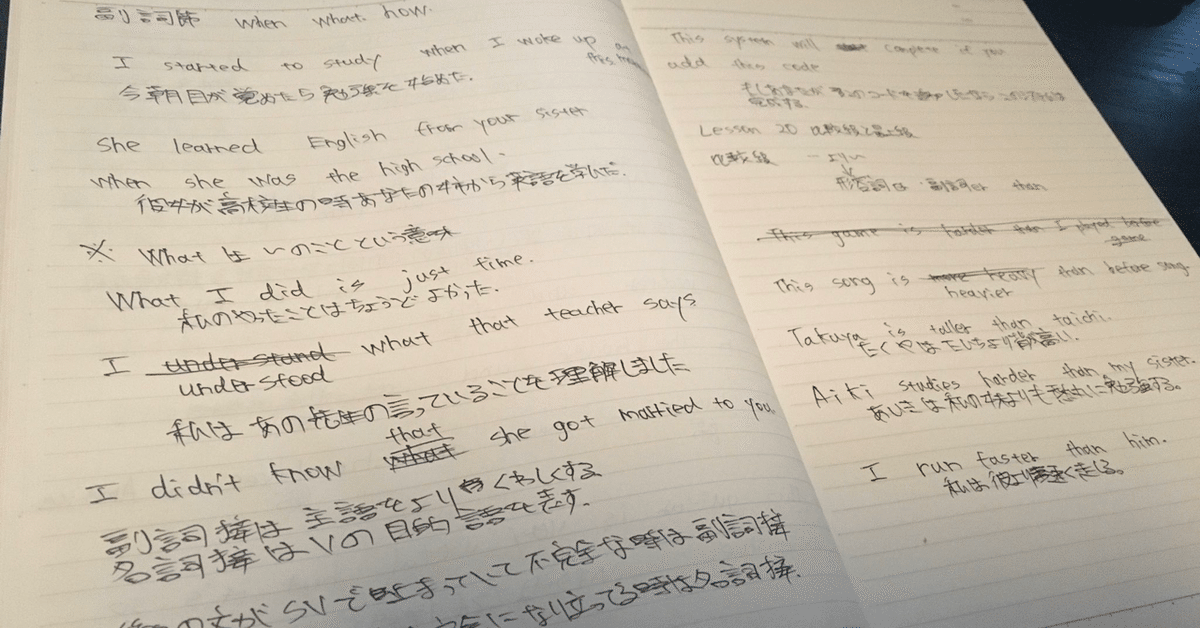 副詞節 when what how.
I started to study when I woke up this
今朝目が覚めたら勉強を始めた.
She learned English from your sister
when she was the high school.
彼女が高校生の時あなたの妹から英語を学んだ.
※ What は 〜のことという意味
What I did is just time.
私のやったことはちょうどよかった.
I understand what that teacher says
understood
私はあの先生の言っていることを理解しました
that
I didn't know what she got married to you.
副詞接は主語をよりくわしくする
名詞接はVの目的語を表す.
の文がSVで止まっていて不完全な時は副詞接
になり立ってる時は名詞接.
This system will compete if you
add this code
完成する.
Lesson 20 比較級と最上級
比較級 〜より〜
形容詞er 副詞er than
This game is harder than I played before
game
This song is more heavy than before song
heavier
Takuya is taller than taichi.
たくやはたいちより背高い.
Aiki studies harder than my sister.
あいきは私の妹よりも勉強する。
I run faster than him.
私は彼より速く走る。